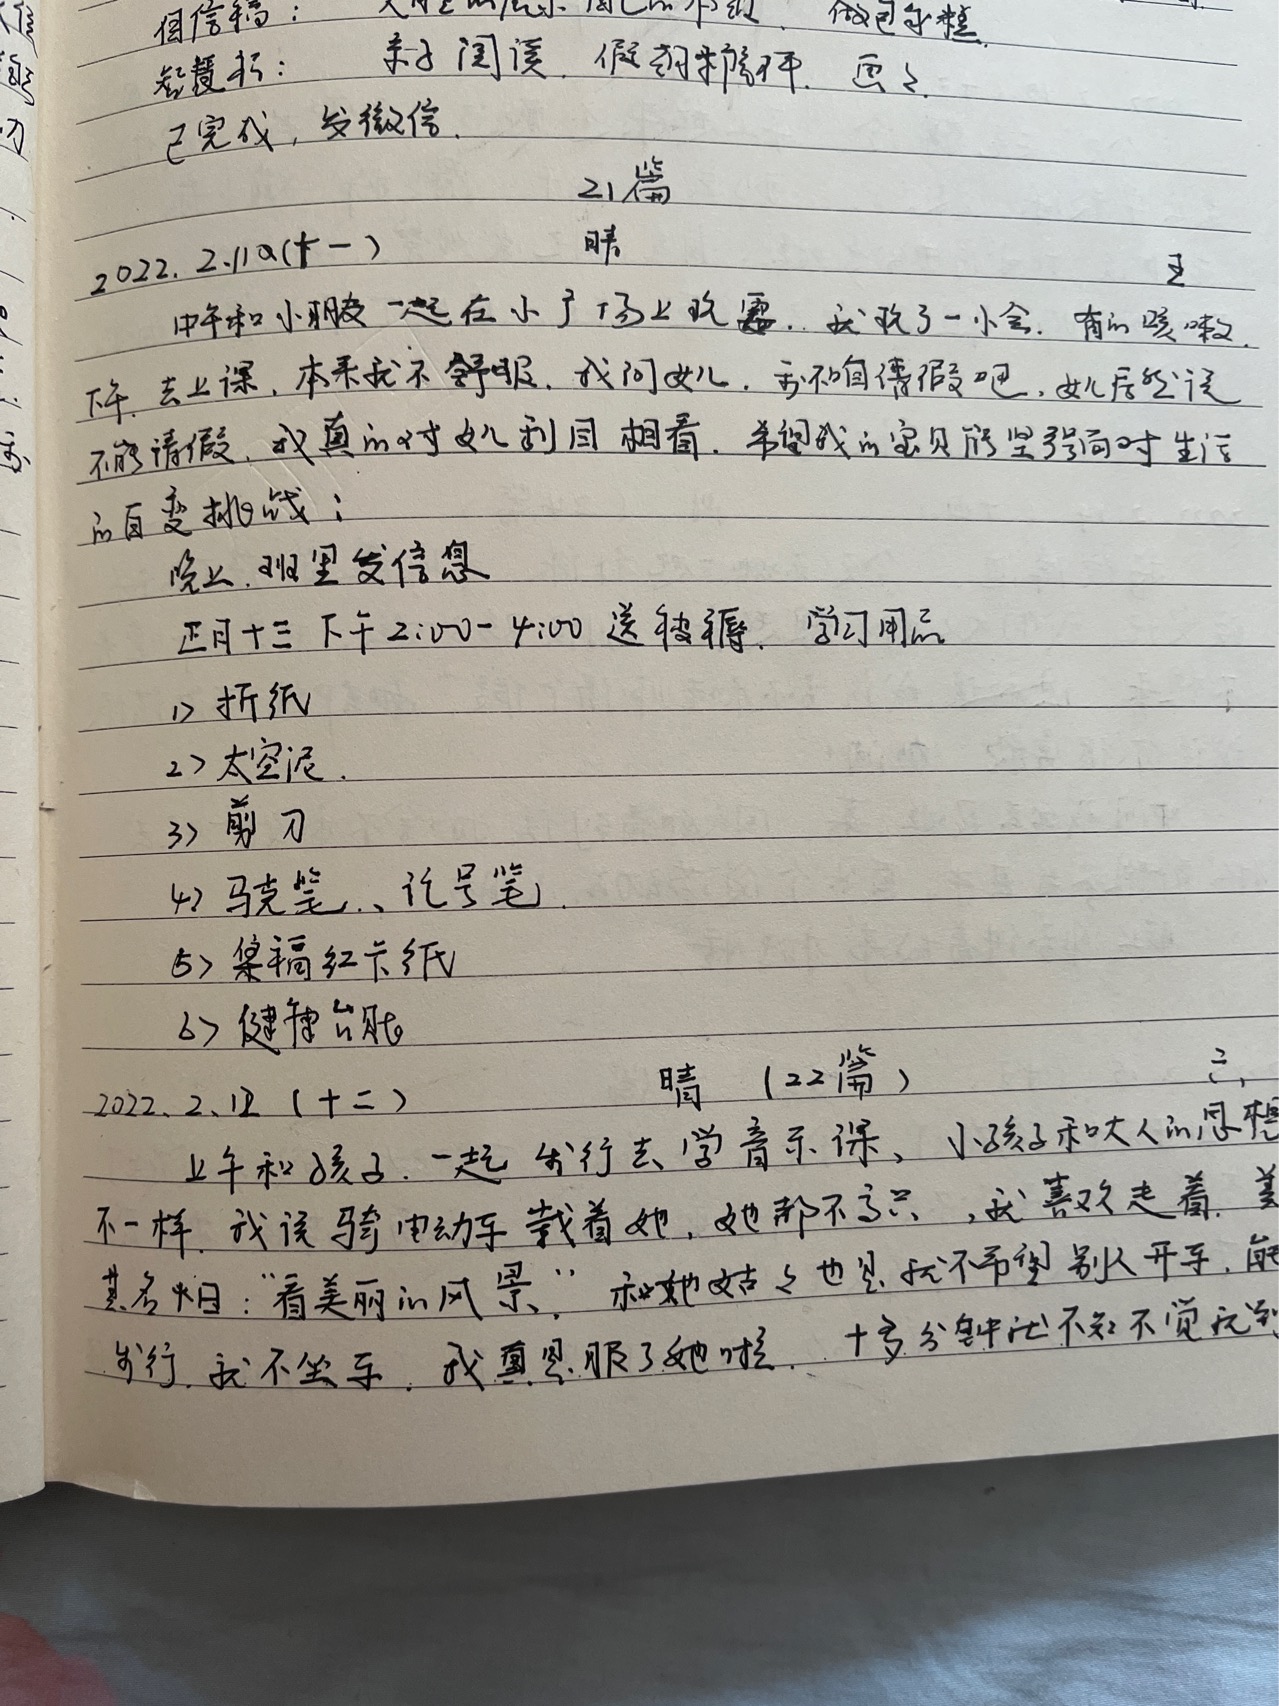 自信稿：
智慧枦： 亲子阅读．假期 画々．
已完成，发微信．
21篇
2022．2．11（十一） 晴 五
中午和小朋友一起在小广场上玩耍．我玩了一小会．有的咳嗽．
下午．去上课．本来我不舒服．我问女儿．要不咱请假吧．女儿居然说
不能请假．我真的对女儿刮目相看．希望我的宝贝能坚强面对生活
的百变挑战；
晚上．班里发信息
正月十三 下午2:00-4:00 送被褥．学习用品
1> 折纸
2> 太空泥．
3> 剪刀
4> 马克笔、记号笔．
5> 集福红卡纸
6> 健种台账
2022．2．12（十二） 晴 （22篇） 六．
上午和孩子．一起步行去学音乐课、小孩子和大人的思想
不一样．我说骑电动车载着她．她都不高兴，我喜欢走着．美
其名曰：“看美丽的风景，” 和她姑々也是．我不希望别人开车．能
步行．我不坐车．我真是服了她啦． 十多分钟 不知不觉就到